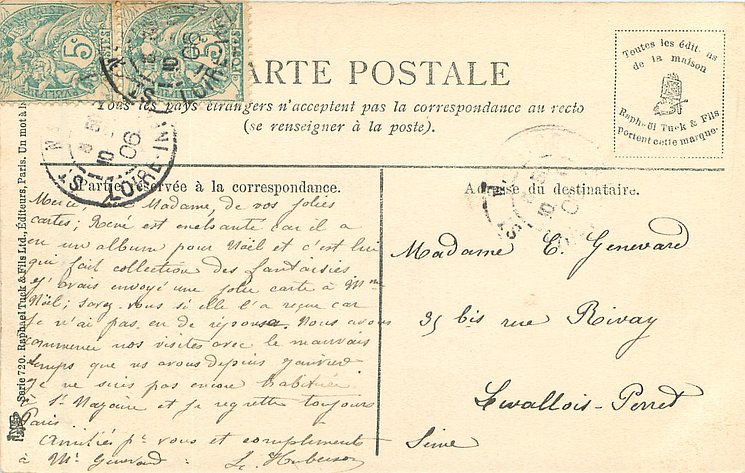 CARTE POSTALE
Tous les pays étrangers n'acceptent pas la correspondance au recto
(se renseigner à la poste).
Toutes les édit. ns
de la maison
Raphaël Tuck & Fils
portent cette marque.
5c
5c
10
06
LOIRE-INF
Partie réservée à la correspondance.
Merci Madame de vos jolies
cartes; René est enchanté car il a
eu un album pour Noël et c'est lui
qui fait collection des fantaisies
J'avais envoyé une jolie carte à Mme
Noël; savez-vous si elle l'a reçue car
je n'ai pas eu de réponse. Nous avons
commencé nos visites avec le mauvais
temps que ns avons depuis janvier
je ne suis pas encore habituée
à St Nazaire et je regrette toujours
Paris.
Amitiés pr vous et compliments
à Mr Genevard
Adresse du destinataire.
Madame E. Genevard
35 bis rue Rivay
Levallois-Perret
Seine
Serie 720. Raphael Tuck & Fils Ltd., Éditeurs, Paris. Un mot à